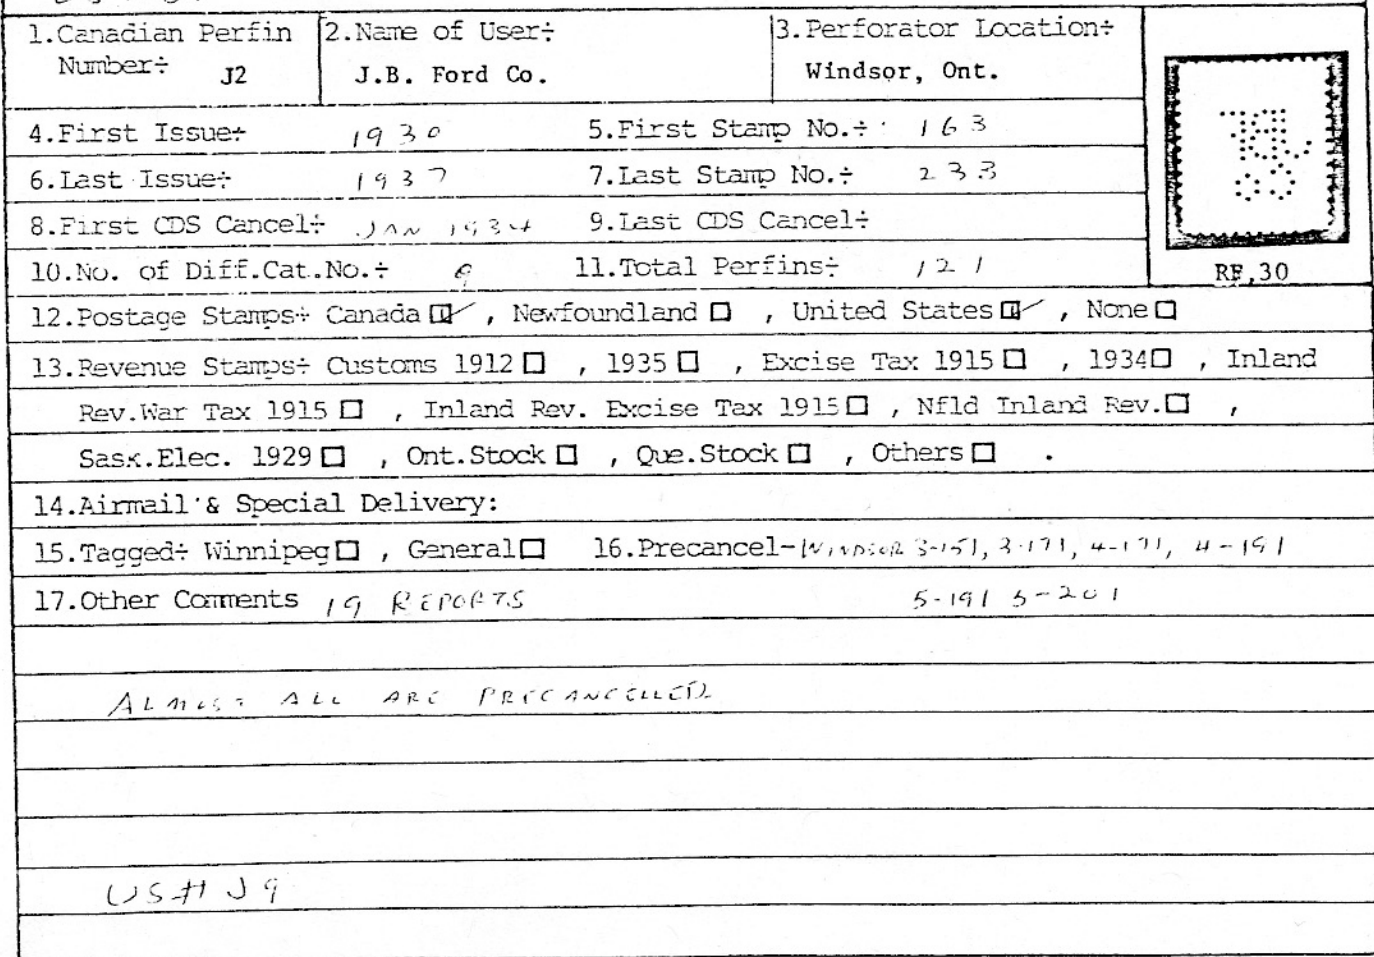 1.Canadian Perfin 2.Name of User÷ 3.Perforator Location÷
Number÷ J2 J.B. Ford Co. Windsor, Ont.
4.First Issue÷ 1930 5.First Stamp No.÷ 163
6.Last Issue÷ 1937 7.Last Stamp No.÷ 233
8.First CDS Cancel÷ JAN 1934 9.Last CDS Cancel÷
10.No. of Diff.Cat.No.÷ 9 11.Total Perfins÷ 121
RF,30
12.Postage Stamps÷ Canada ☑ , Newfoundland ☐ , United States ☑ , None ☐
13.Revenue Stamps÷ Customs 1912 ☐ , 1935 ☐ , Excise Tax 1915 ☐ , 1934 ☐ , Inland
Rev.War Tax 1915 ☐ , Inland Rev. Excise Tax 1915 ☐ , Nfld Inland Rev. ☐ ,
Sask.Elec. 1929 ☐ , Ont.Stock ☐ , Que.Stock ☐ , Others ☐ .
14.Airmail & Special Delivery:
15.Tagged÷ Winnipeg ☐ , General ☐ 16.Precancel- WINDSOR 3-151, 3-171, 4-171, 4-191
17.Other Comments 19 REPORTS 5-191 5-201
ALMOST ALL ARE PRECANCELLED
US# J9